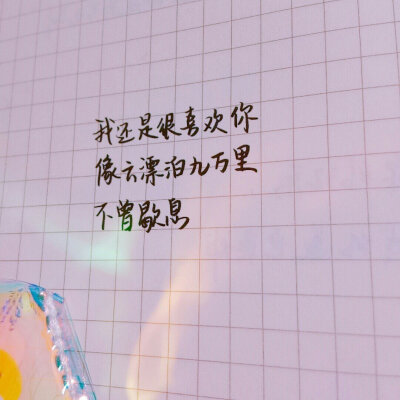 我还是很喜欢你
像云漂泊九万里
不曾歇息